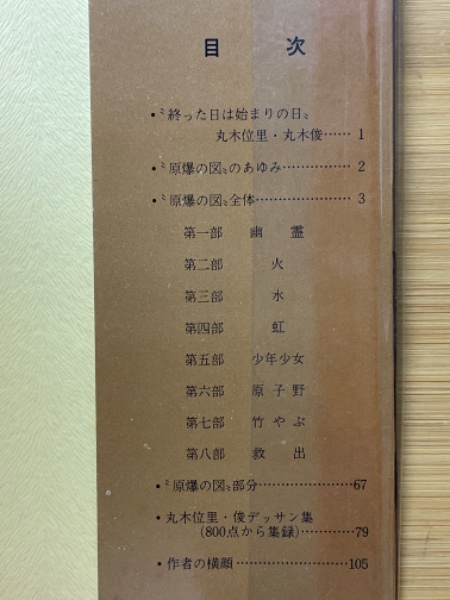 目次
•〝終った日は始まりの日〟
丸木位里・丸木俊…… 1
•〝原爆の図〟のあゆみ…………… 2
•〝原爆の図〟全体………………… 3
第一部 幽霊
第二部 火
第三部 水
第四部 虹
第五部 少年少女
第六部 原子野
第七部 竹やぶ
第八部 救出
•〝原爆の図〟部分…………………67
•丸木位里・俊デッサン集
(800点から集録)…………79
•作者の横顔……………………105